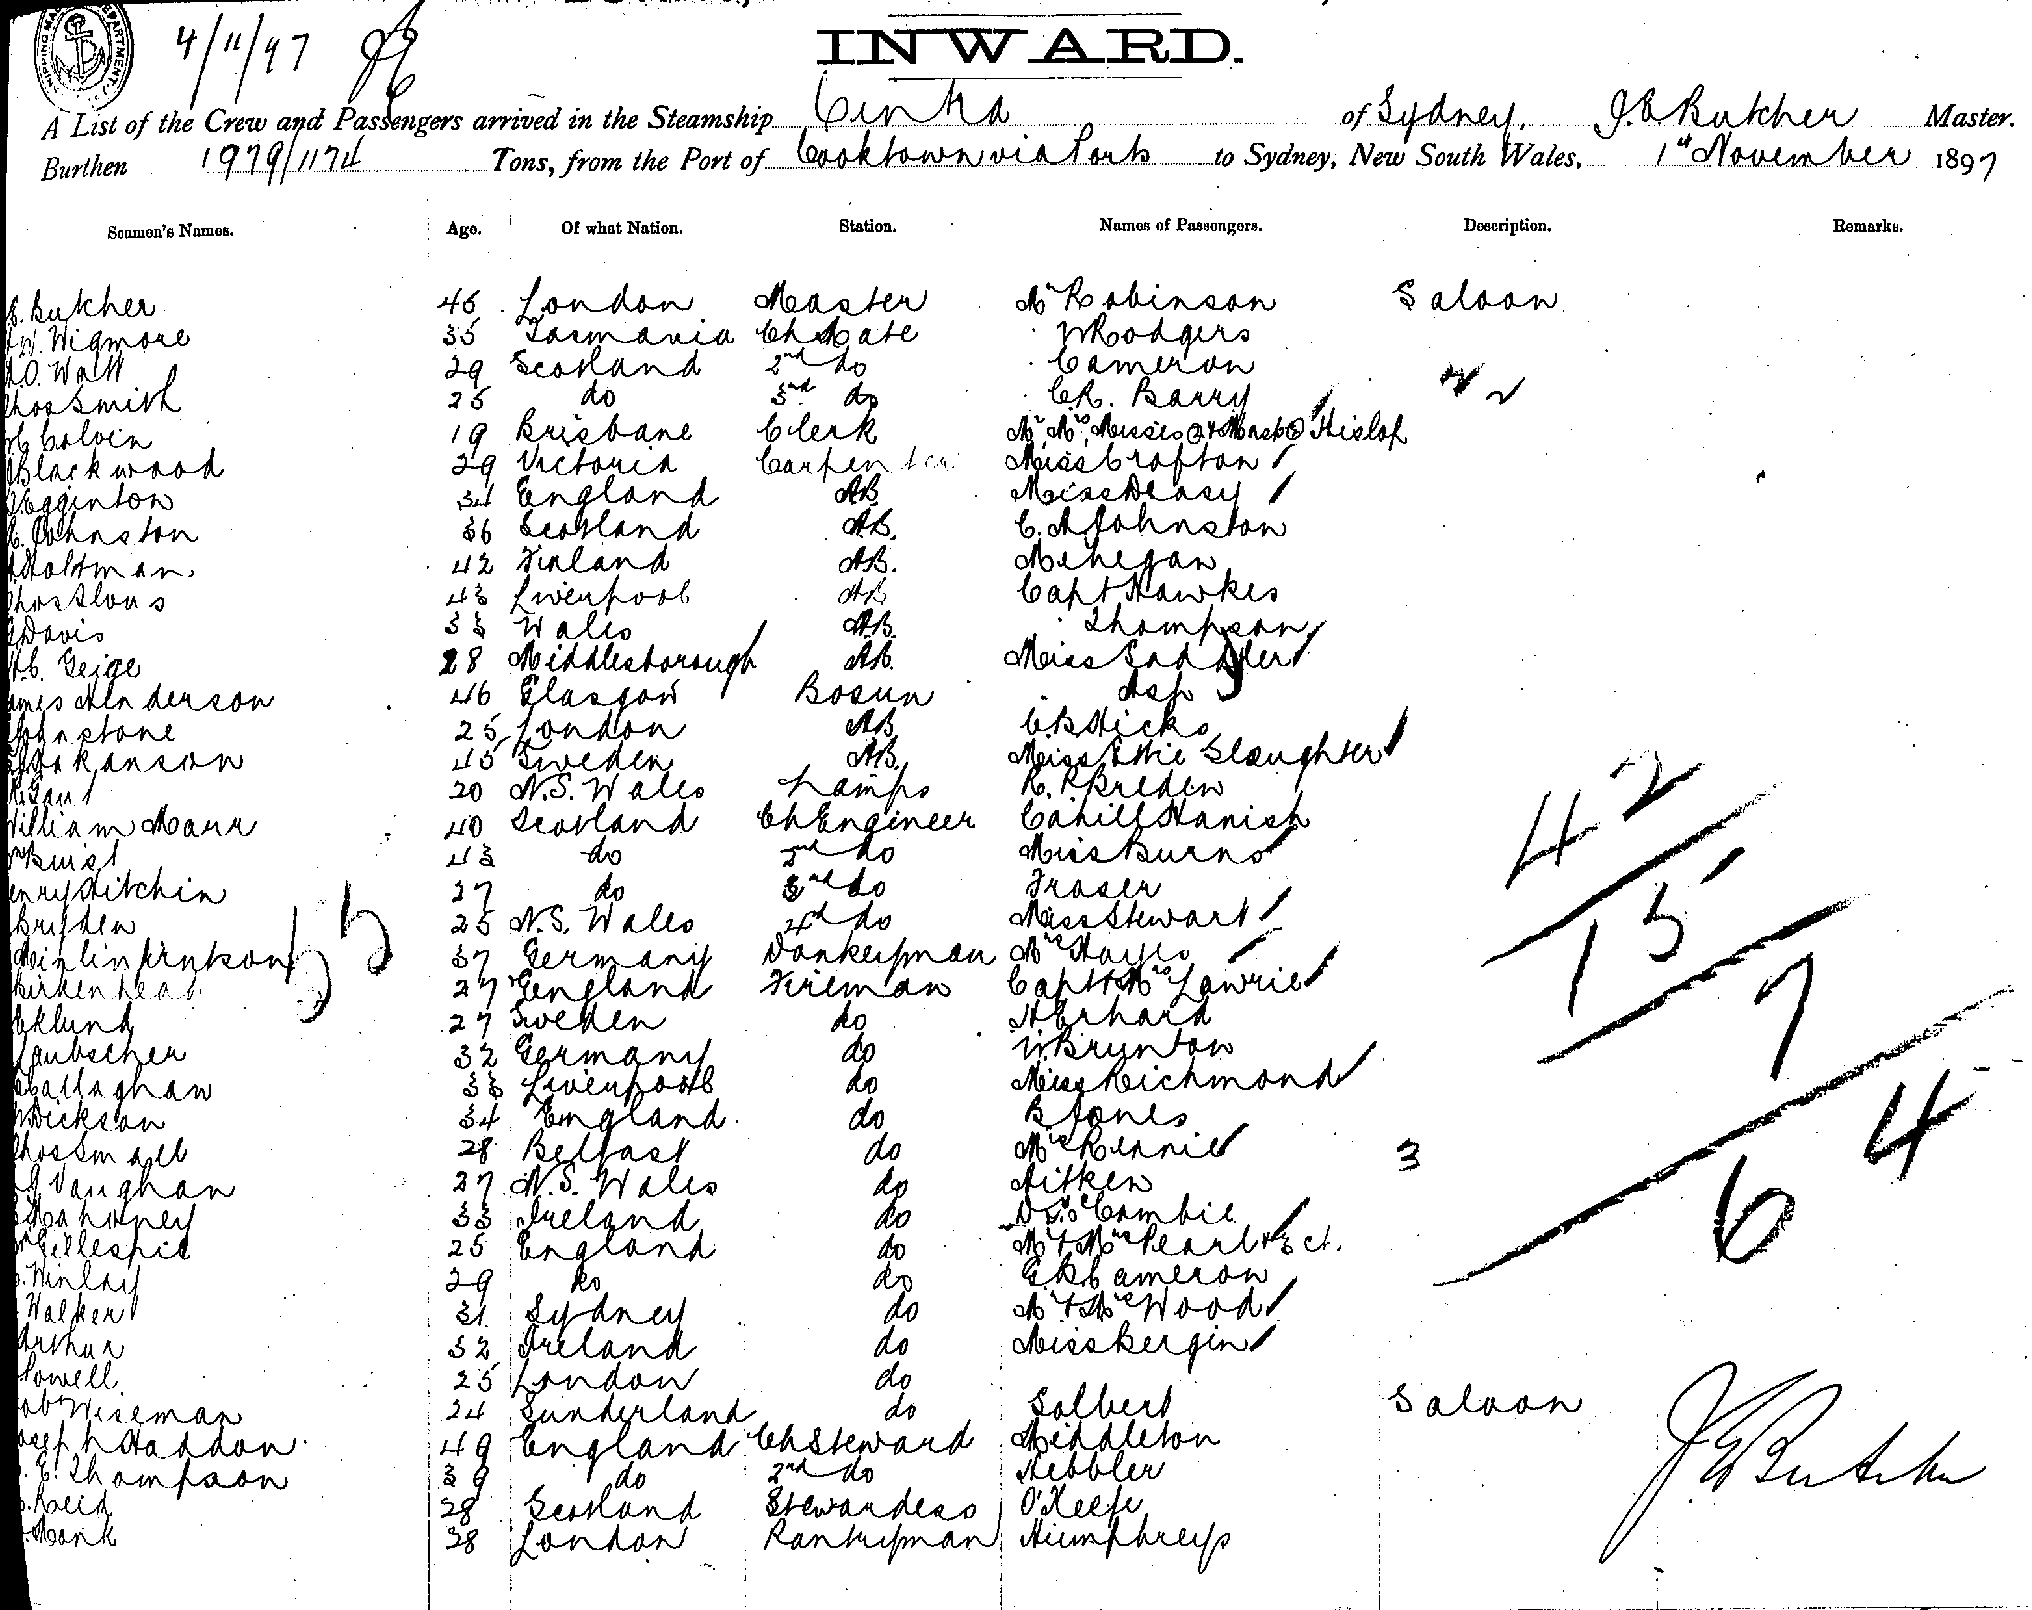 4/11/97
INWARD.
A List of the Crew and Passengers arrived in the Steamship Cintra of Sydney, J. E Butcher Master.
Burthen 1979/1174 Tons, from the Port of Cooktown via Ports to Sydney, New South Wales, 1st November 1897
Seamen's Names. Age. Of what Nation. Station. Names of Passengers. Description. Remarks.
E. Butcher 46 London Master Mr Robinson Saloon
W. Wigmore 35 Tasmania Ch Mate W Rodgers
O. Watt 29 Scotland 2nd do Cameron
Thos Smith 25 do 3rd do C.R. Barry
C Colvin 19 Brisbane Clerk Mr, Mrs, Misses (2) & Mast (2) Hislop
Blackwood 29 Victoria Carpenter Miss Crofton
Egginton 34 England AB Miss Deasy
C. Johnston 36 Scotland AB. C. A Johnston
Holtman 42 Finland AB. Menegan
Thos Slous 43 Liverpool AB Capt Hawkes
Davis 33 Wales AB. Thompson
C. Geige 28 Middlesborough AB. Miss Saddler
James Henderson 46 Glasgow Bosun Asp
Johnstone 25 London AB C B Hicks
Hakanson 45 Sweden AB. Miss Ettie Slaughter
R. Gaut 20 N.S. Wales Lamps R. P Breden
William Marr 40 Scotland Ch Engineer Cahill Hanish
Buist 43 do 2nd do Miss Burns
Henry Hitchin 27 do 3rd do Fraser
Bryden 25 N.S. Wales 4th do Miss Stewart
37 Germany Donkeyman Mrs Hayes
Birkenhead 27 England Fireman Capt & Mrs Lawrie
Eklund 27 Sweden do H Erhard
Laubscher 32 Germany do W. Brynton
Callaghan 33 Liverpool do Miss Richmond
Dickson 34 England do B Jones
Thos Small 28 Belfast do Mrs Rennie 3
Vaughan 27 N.S. Wales do Aitken
Mahoney 33 Ireland do Dr Combie
Gillespie 25 England do Mr & Mrs Pearl & 3 ch.
Winlay 29 do do G. B Cameron
Walker 31 Sydney do Mr & Mrs Wood
Arthur 32 Ireland do Miss Bergin
Powell 25 London do
Robt Wiseman 24 Sunderland do Solbert Saloon
Joseph Haddon 49 England Ch Steward Middleton
E. Thompson 39 do 2nd do Hebbler
Reid 28 Scotland Stewardess O'Keefe
Monk 38 London Pantryman Humphreys
42
15
7
64
J E Butcher